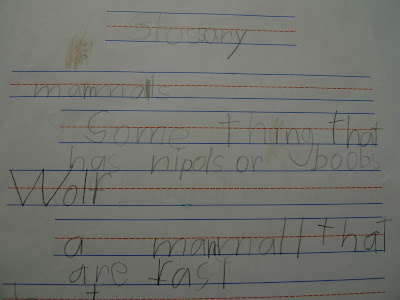 Glossary
mammals
Some thing that
has nipols or boobs
Wolf
a mammall that
are fast